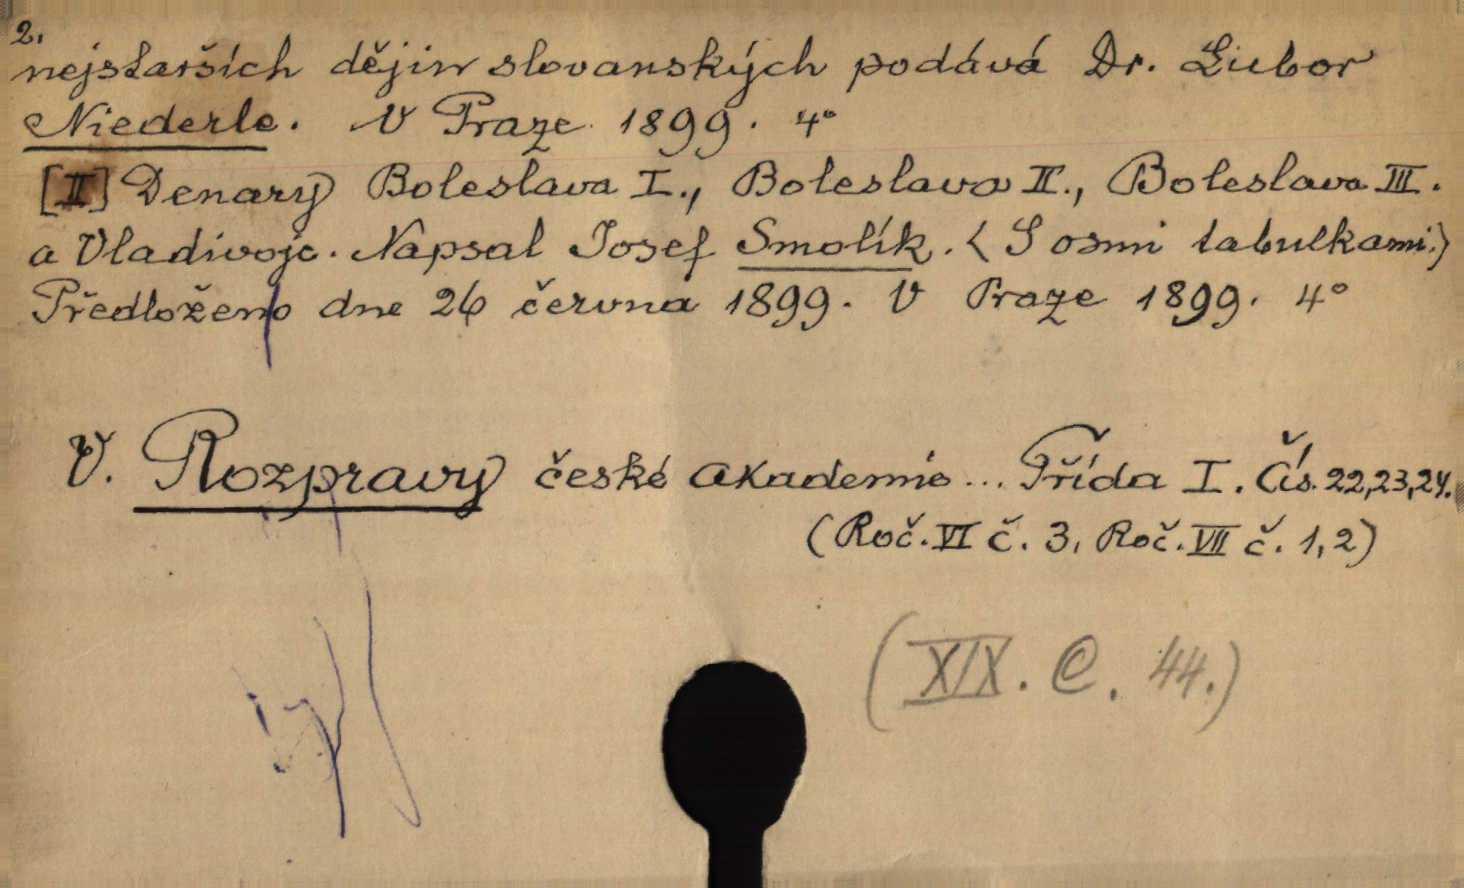 2.
nejstarších dějin slovanských podává Dr. Lubor
Niederle. V Praze 1899. 4°
[II] Denary Boleslava I., Boleslava II., Boleslava III.
a Vladivoje. Napsal Josef Smolík. (S osmi tabulkami.)
Předloženo dne 26 června 1899. V Praze 1899. 4°
V. Rozpravy české akademie ... Třída I. Čís. 22,23,24.
(Roč. VI č. 3, Roč. VII č. 1,2)
(XIX. C. 44.)